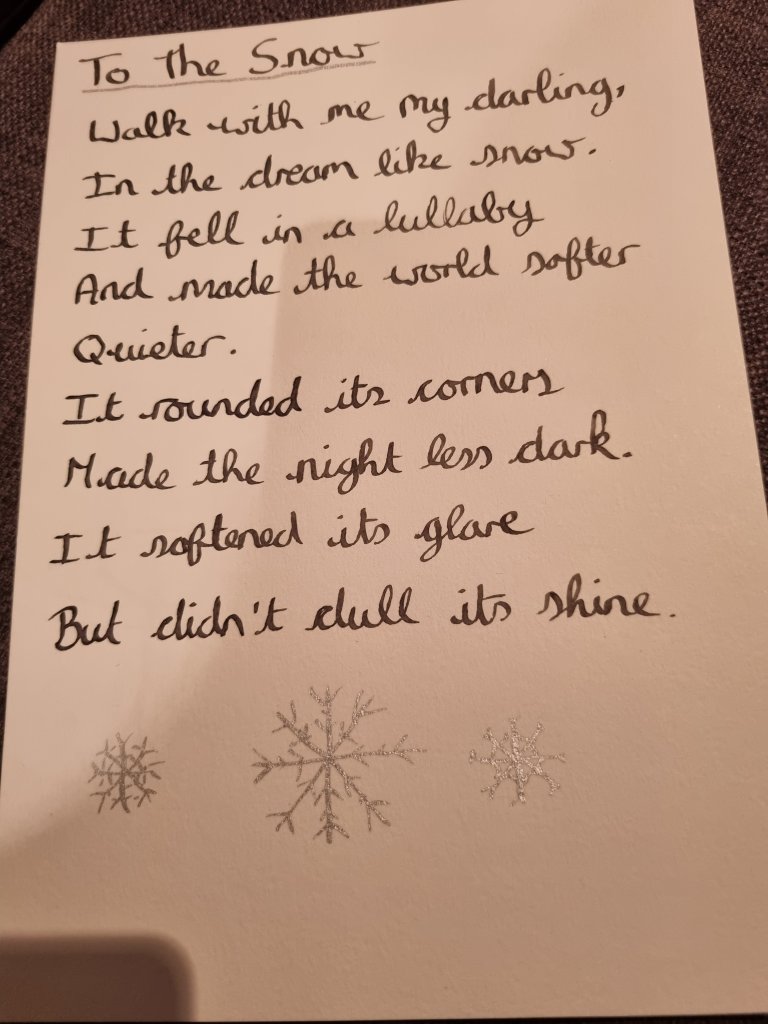 To The Snow
Walk with me my darling,
In the dream like snow.
It fell in a lullaby
And made the world softer
Quieter.
It rounded its corners
Made the night less dark.
It softened its glare
But didn't dull its shine.